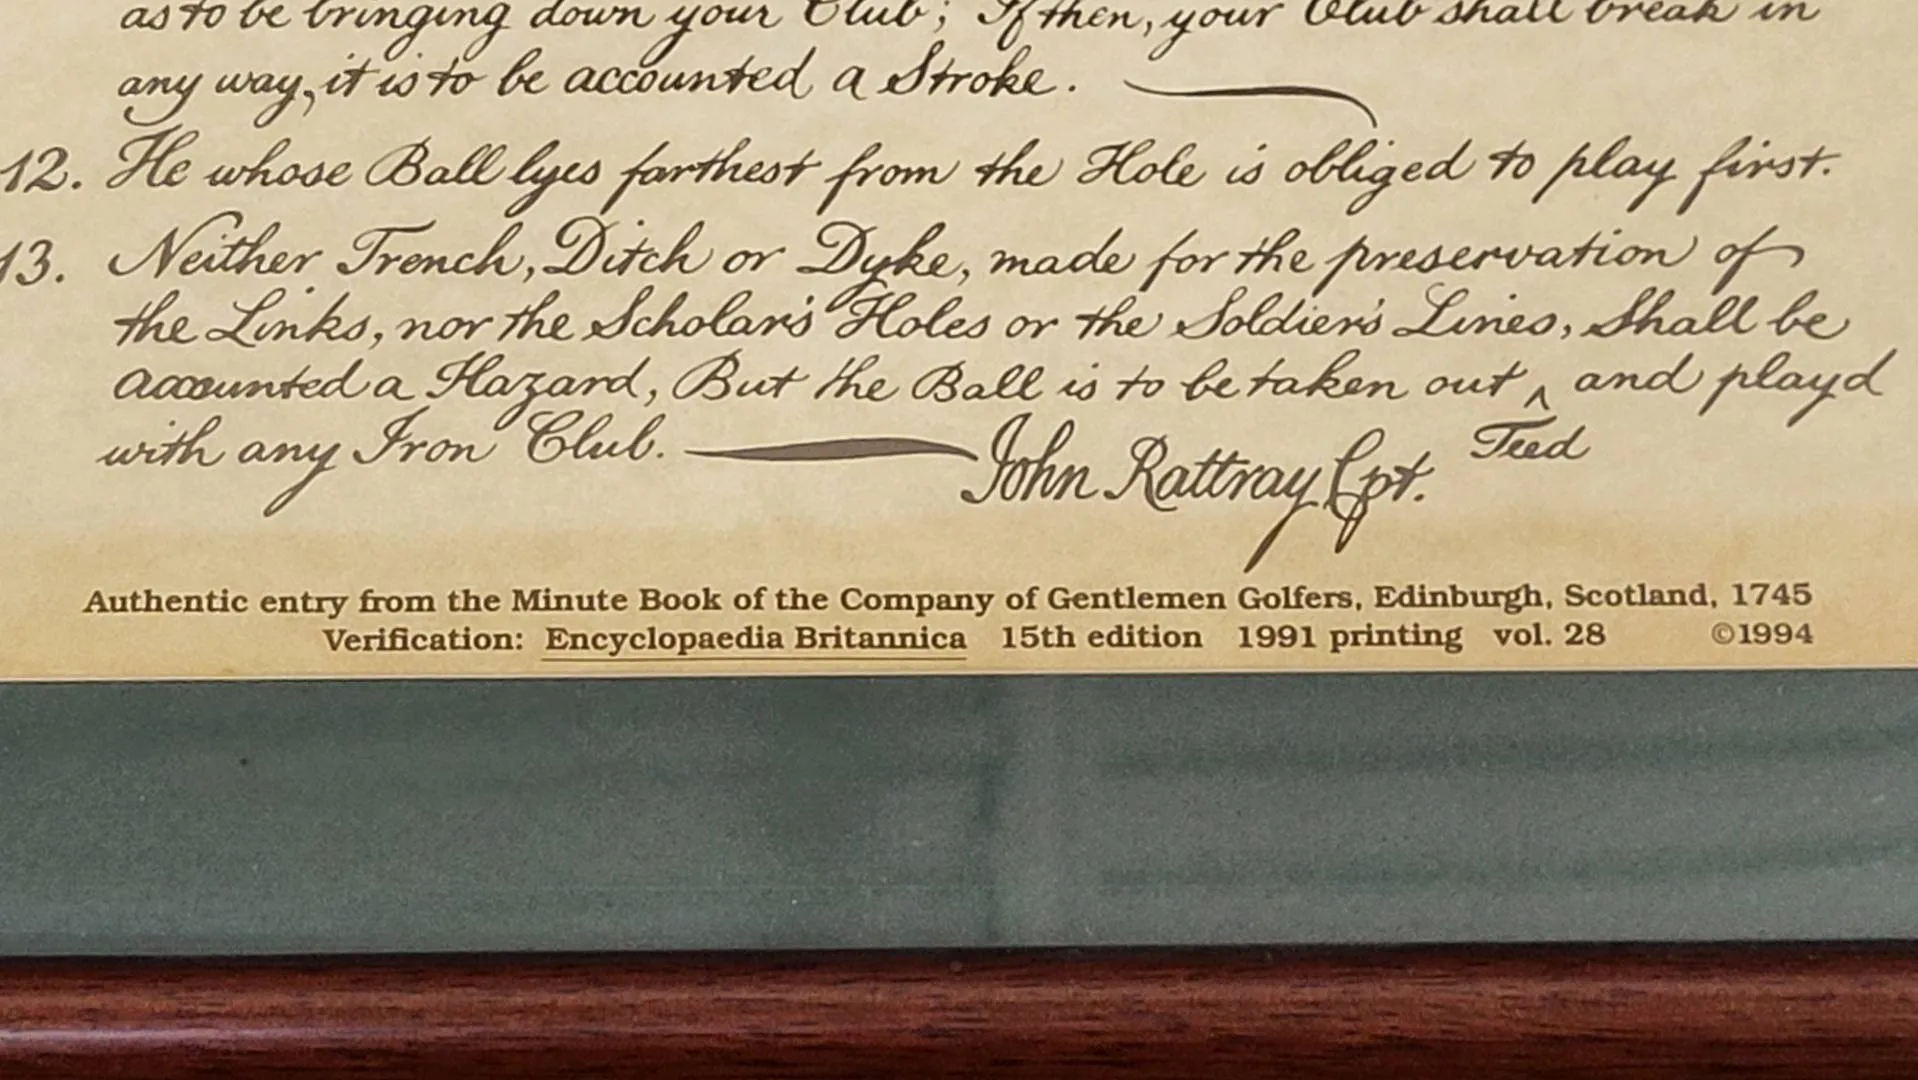 as to be bringing down your Club; If then, your Club shall break in
any way, it is to be accounted a Stroke.
12. He whose Ball lyes farthest from the Hole is obliged to play first.
13. Neither Trench, Ditch or Dyke, made for the preservation of
the Links, nor the Scholar's Holes or the Soldier's Lines, Shall be
accounted a Hazard, But the Ball is to be taken out ‸ and playd
with any Iron Club. John Rattray Cpt. Teed
Authentic entry from the Minute Book of the Company of Gentlemen Golfers, Edinburgh, Scotland, 1745
Verification: Encyclopaedia Britannica 15th edition 1991 printing vol. 28 ©1994